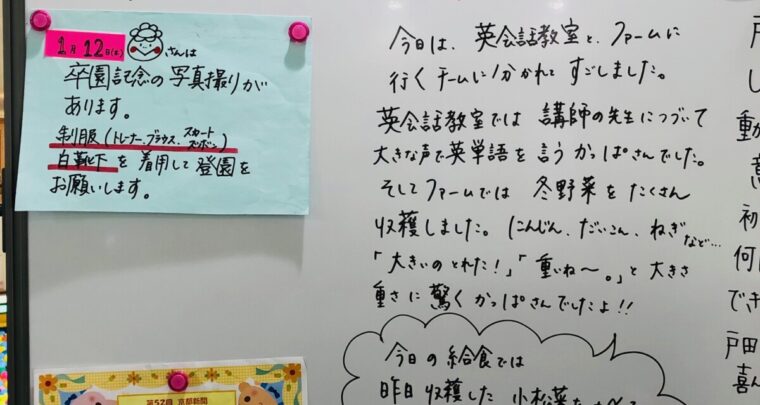 1月12日(木)
さんは
卒園記念の写真撮りが
あります。
制服(トレーナー、ブラウス、スカート
ズボン)
白靴下を着用して登園を
お願いします。
今日は、英会話教室と、ファームに
行くチームに分かれてすごしました。
英会話教室では講師の先生につづいて
大きな声で英単語を言うかっぱさんでした。
そしてファームでは冬野菜をたくさん
収穫しました。にんじん、だいこん、ねぎなど…
「大きいのとれた!」「重いね〜。」と大きさ
重さに驚くかっぱさんでしたよ!!
今日の給食では
昨日収穫した小松菜を
第52回 京都新聞
戸
し
動
意
初
何
でき
戸田
喜ん